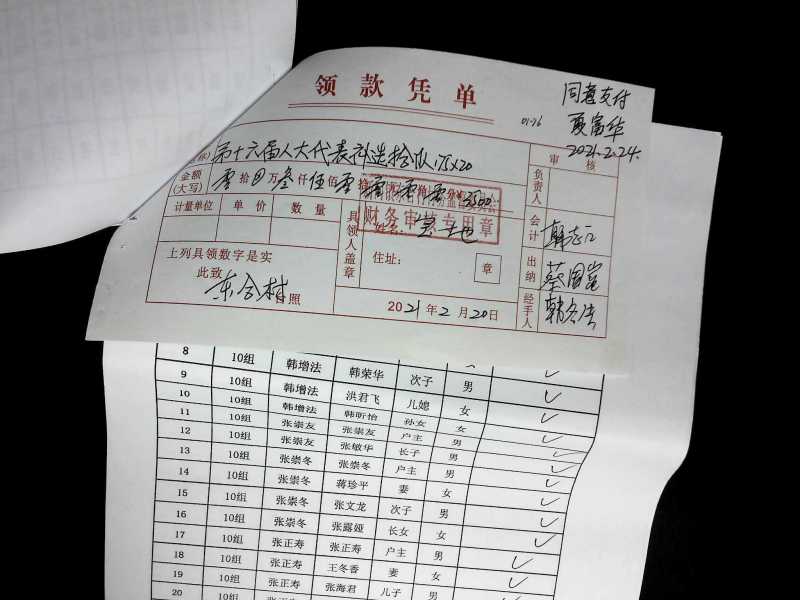 领款凭单
同意支付
夏富华
2021.2.24.
01-16
第十六届人大代表补选 175×20
审核
金额
(大写)
零拾 万叁仟伍佰零拾 3500
负责人
计量单位 单价 数量
财务审核专用章
具领人盖章
会计
韩志江
上列具领数字是实
此致
住址:
章
出纳
蔡国嵩
东合村 照
2021年2月20日
经手人
韩冬法
8 10组 韩增法 韩荣华 次子 男
9 10组 韩增法 洪君飞 儿媳 女
10 10组 韩增法 韩昕怡 孙女 女
11 10组 张崇友 张崇友 户主 男
12 10组 张崇友 张敏华 长子 男
13 10组 张崇冬 张崇冬 户主 男
14 10组 张崇冬 蒋珍平 妻 女
15 10组 张崇冬 张文龙 次子 男
16 10组 张崇冬 张露娅 长女 女
17 10组 张正寿 张正寿 户主 男
18 10组 张正寿 王冬香 妻 女
19 10组 张正寿 张海君 儿子 男
20